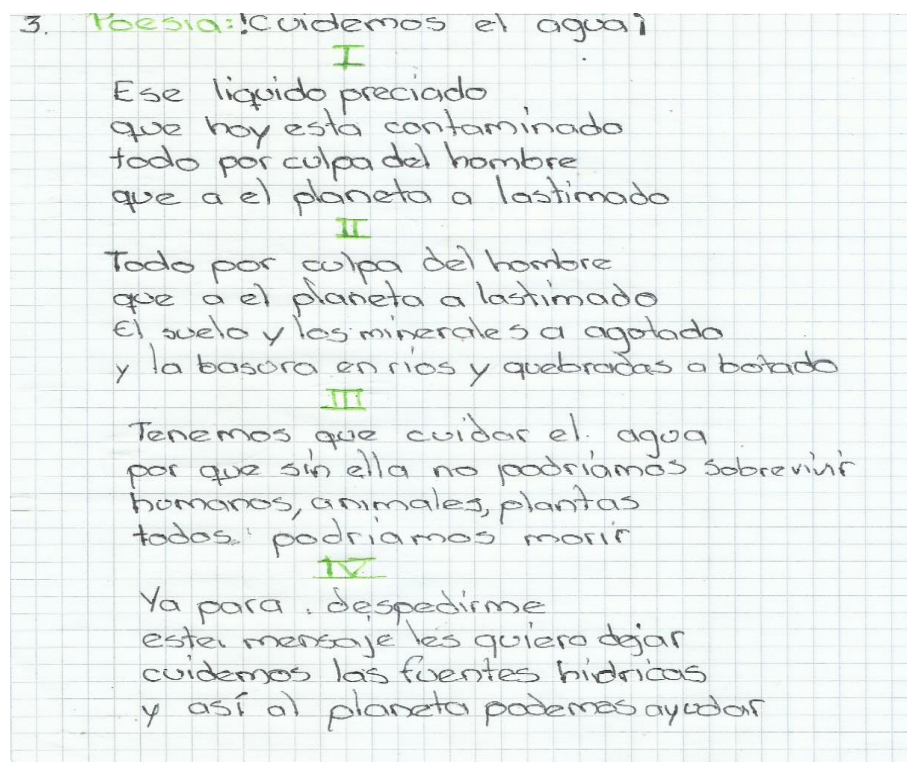 3. Poesia: !Cuidemos el agua¡
I
Ese liquido preciado
que hoy esta contaminado
todo por culpa del hombre
que a el planeta a lastimado
II
Todo por culpa del hombre
que a el planeta a lastimado
El suelo y los minerales a agotado
y la basura en rios y quebradas a botado
III
Tenemos que cuidar el agua
por que sin ella no podriamos sobrevivir
humanos, animales, plantas
todos podriamos morir
IV
Ya para despedirme
este mensaje les quiero dejar
cuidemos las fuentes hidricas
y así al planeta podemos ayudar